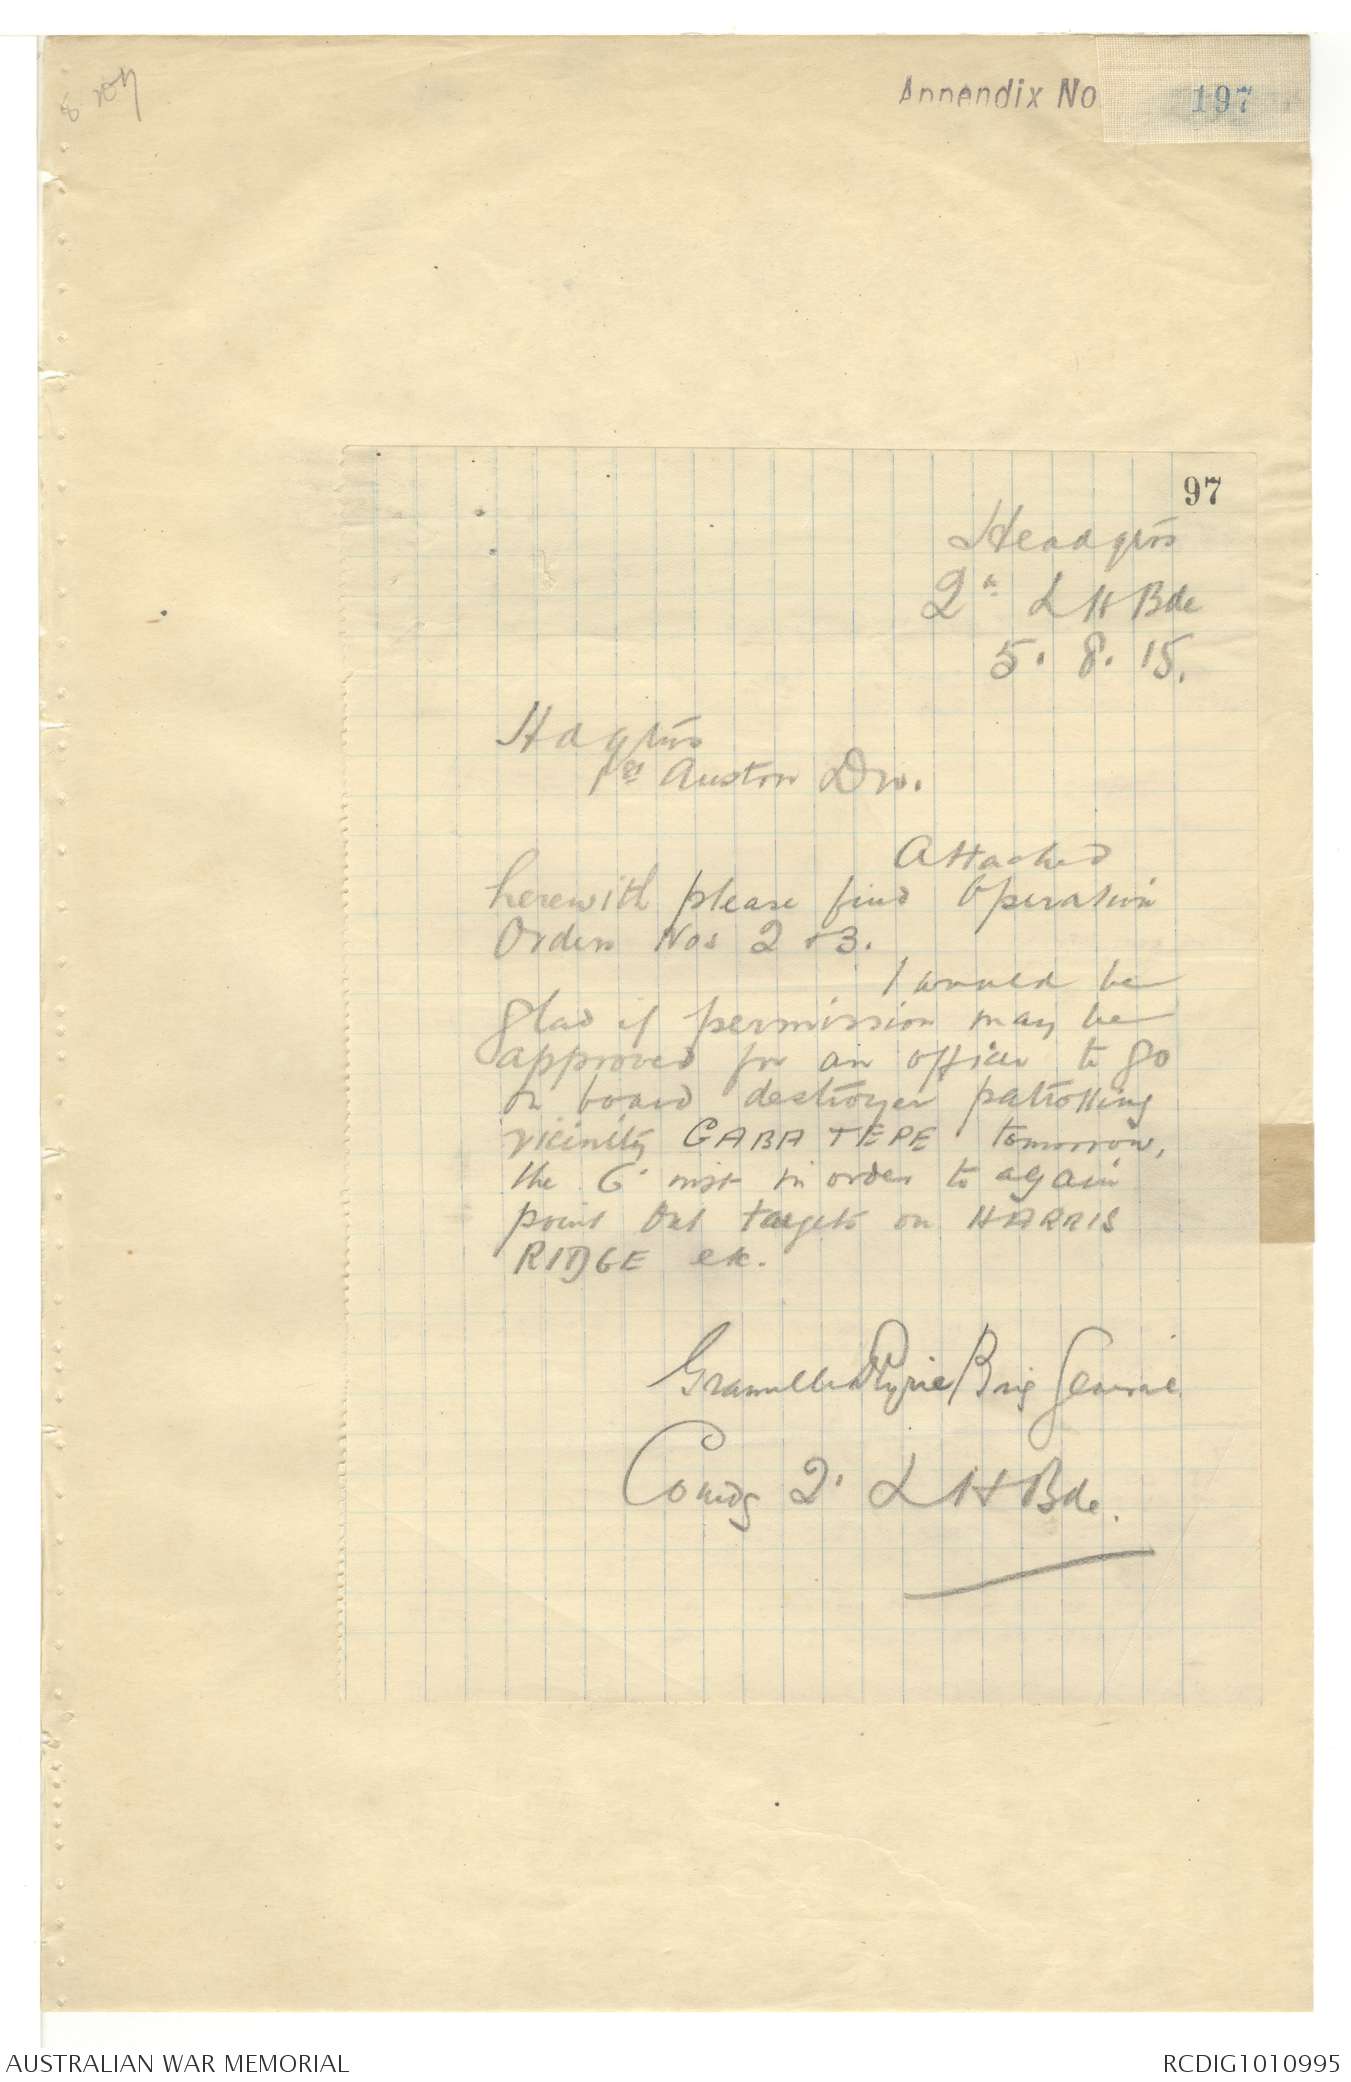 Appendix No 197
97
Headqrs
2n LH Bde
5. 8. 15.
Hdqrs
1st Austrn Div.
Attached
herewith please find Operation
Orders Nos 2 & 3.
I would be
glad if permission may be
approved for an officer to go
on board destroyer patrolling
vicinity GABA TEPE tomorrow,
the 6" inst in order to again
point out targets on HARRIS
RIDGE etc.
Granville Ryrie Brig General
Comdg 2' LH Bde.
AUSTRALIAN WAR MEMORIAL
RCDIG1010995